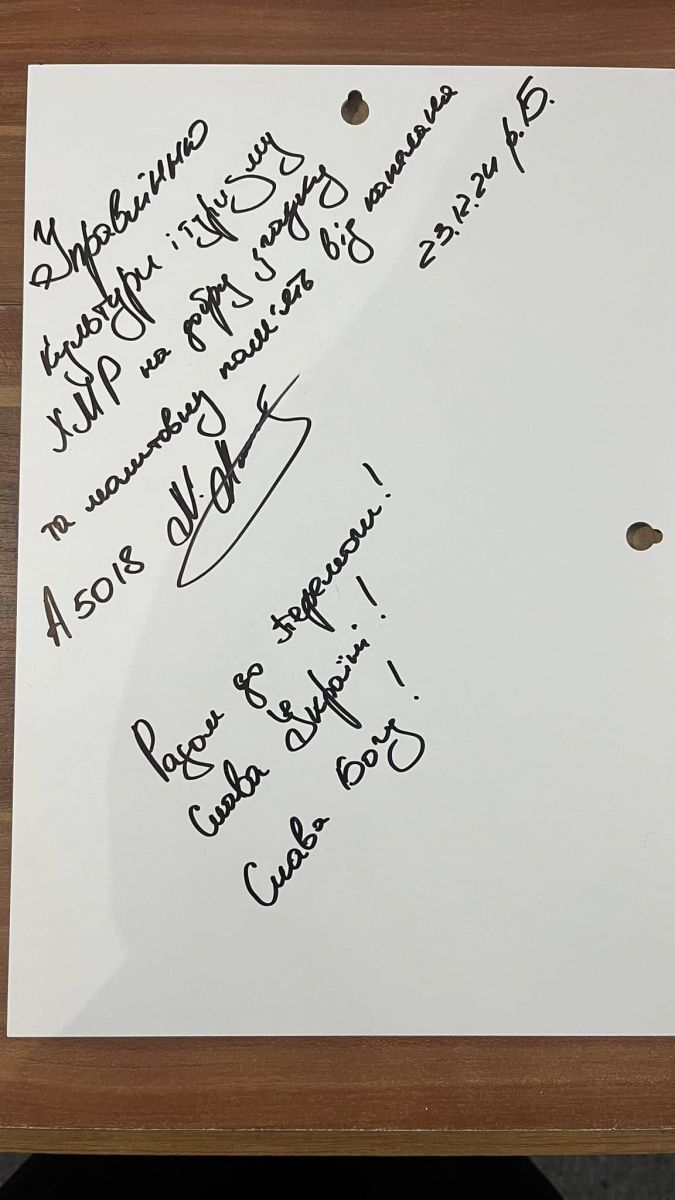 Управлінню
культури і туризму
ХМР на добру згадку
та молитовну пам'ять від капелана
А5018
23.12.24 р.Б.
Разом до Перемоги!
Слава Україні!
Слава Богу!